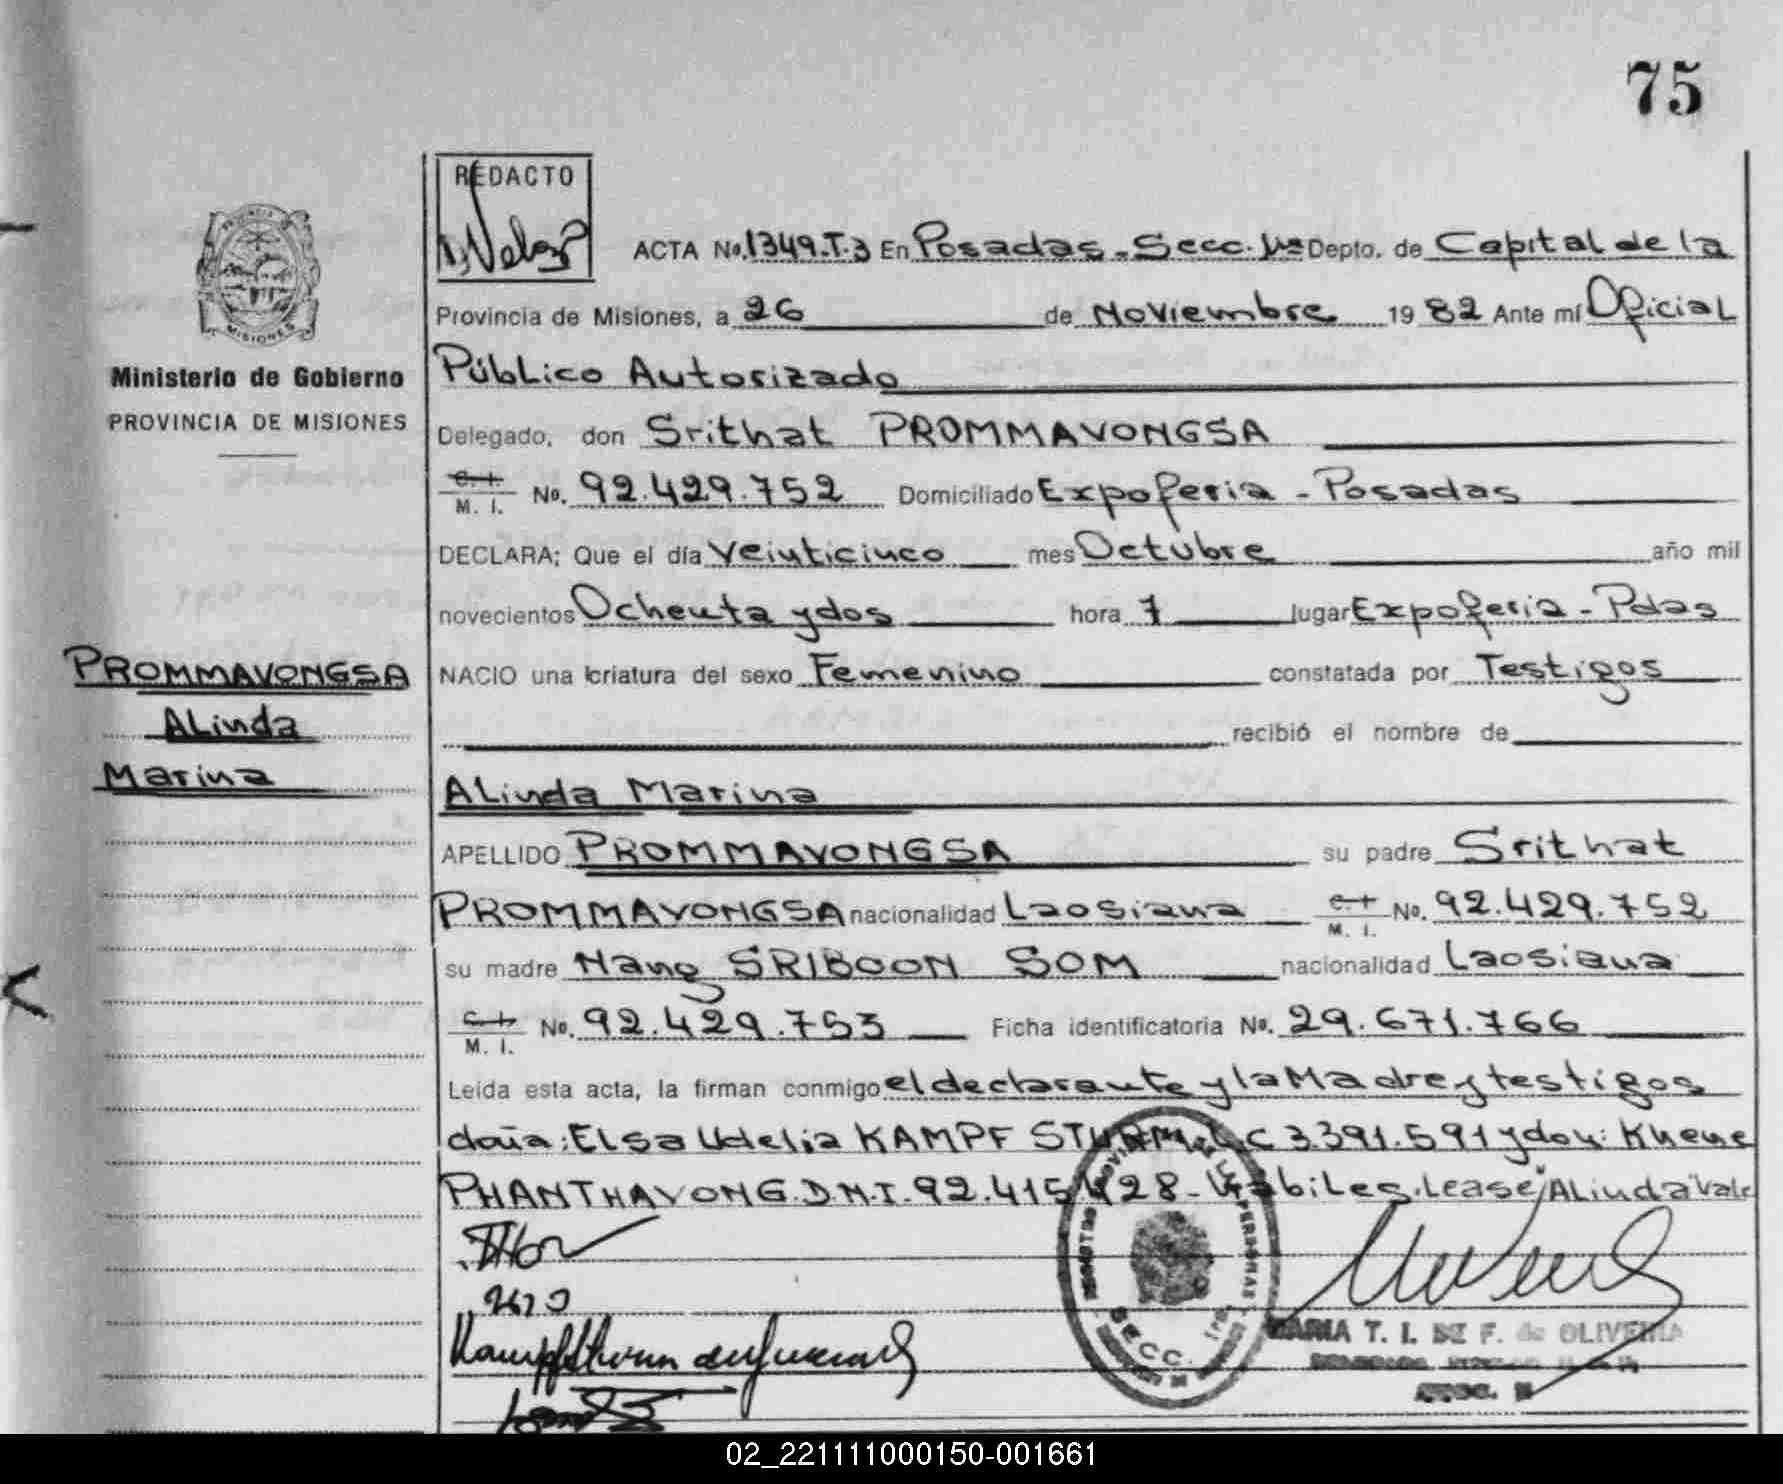 75
REDACTO
ACTA No. 1349.T.3 En Posadas - Secc. 1ª Depto. de Capital de la
Provincia de Misiones, a 26 de Noviembre 1982 Ante mí Oficial
Público Autorizado
Delegado, don Srithat PROMMAVONGSA
C. I. M. I. No. 92.429.752 Domiciliado Expoferia - Posadas
DECLARA; Que el día Veinticinco mes Octubre año mil
novecientos Ochenta y dos hora 7 lugar Expoferia - Pdas
NACIO una criatura del sexo Femenino constatada por Testigos
recibió el nombre de
Alinda Marina
APELLIDO PROMMAVONGSA su padre Srithat
PROMMAVONGSA nacionalidad Laosiana C. I. M. I. No. 92.429.752
su madre Nang SRIBOON SOM nacionalidad Laosiana
C. I. M. I. No. 92.429.753 Ficha identificatoria No. 29.671.766
Leida esta acta, la firman conmigo el declarante y la Madre y testigos
doña: Elsa Udelia KAMPF STURM. L.C 3.391.591 y don: Khene
PHANTHAVONG. D.N.I. 92.415.428 - Hábiles. Lease "Alinda" Vale
MARIA T. I. DE F. de OLIVEIRA
SECC.
PROVINCIA DE
MISIONES
Ministerio de Gobierno
PROVINCIA DE MISIONES
PROMMAVONGSA
Alinda
Marina
02_221111000150-001661